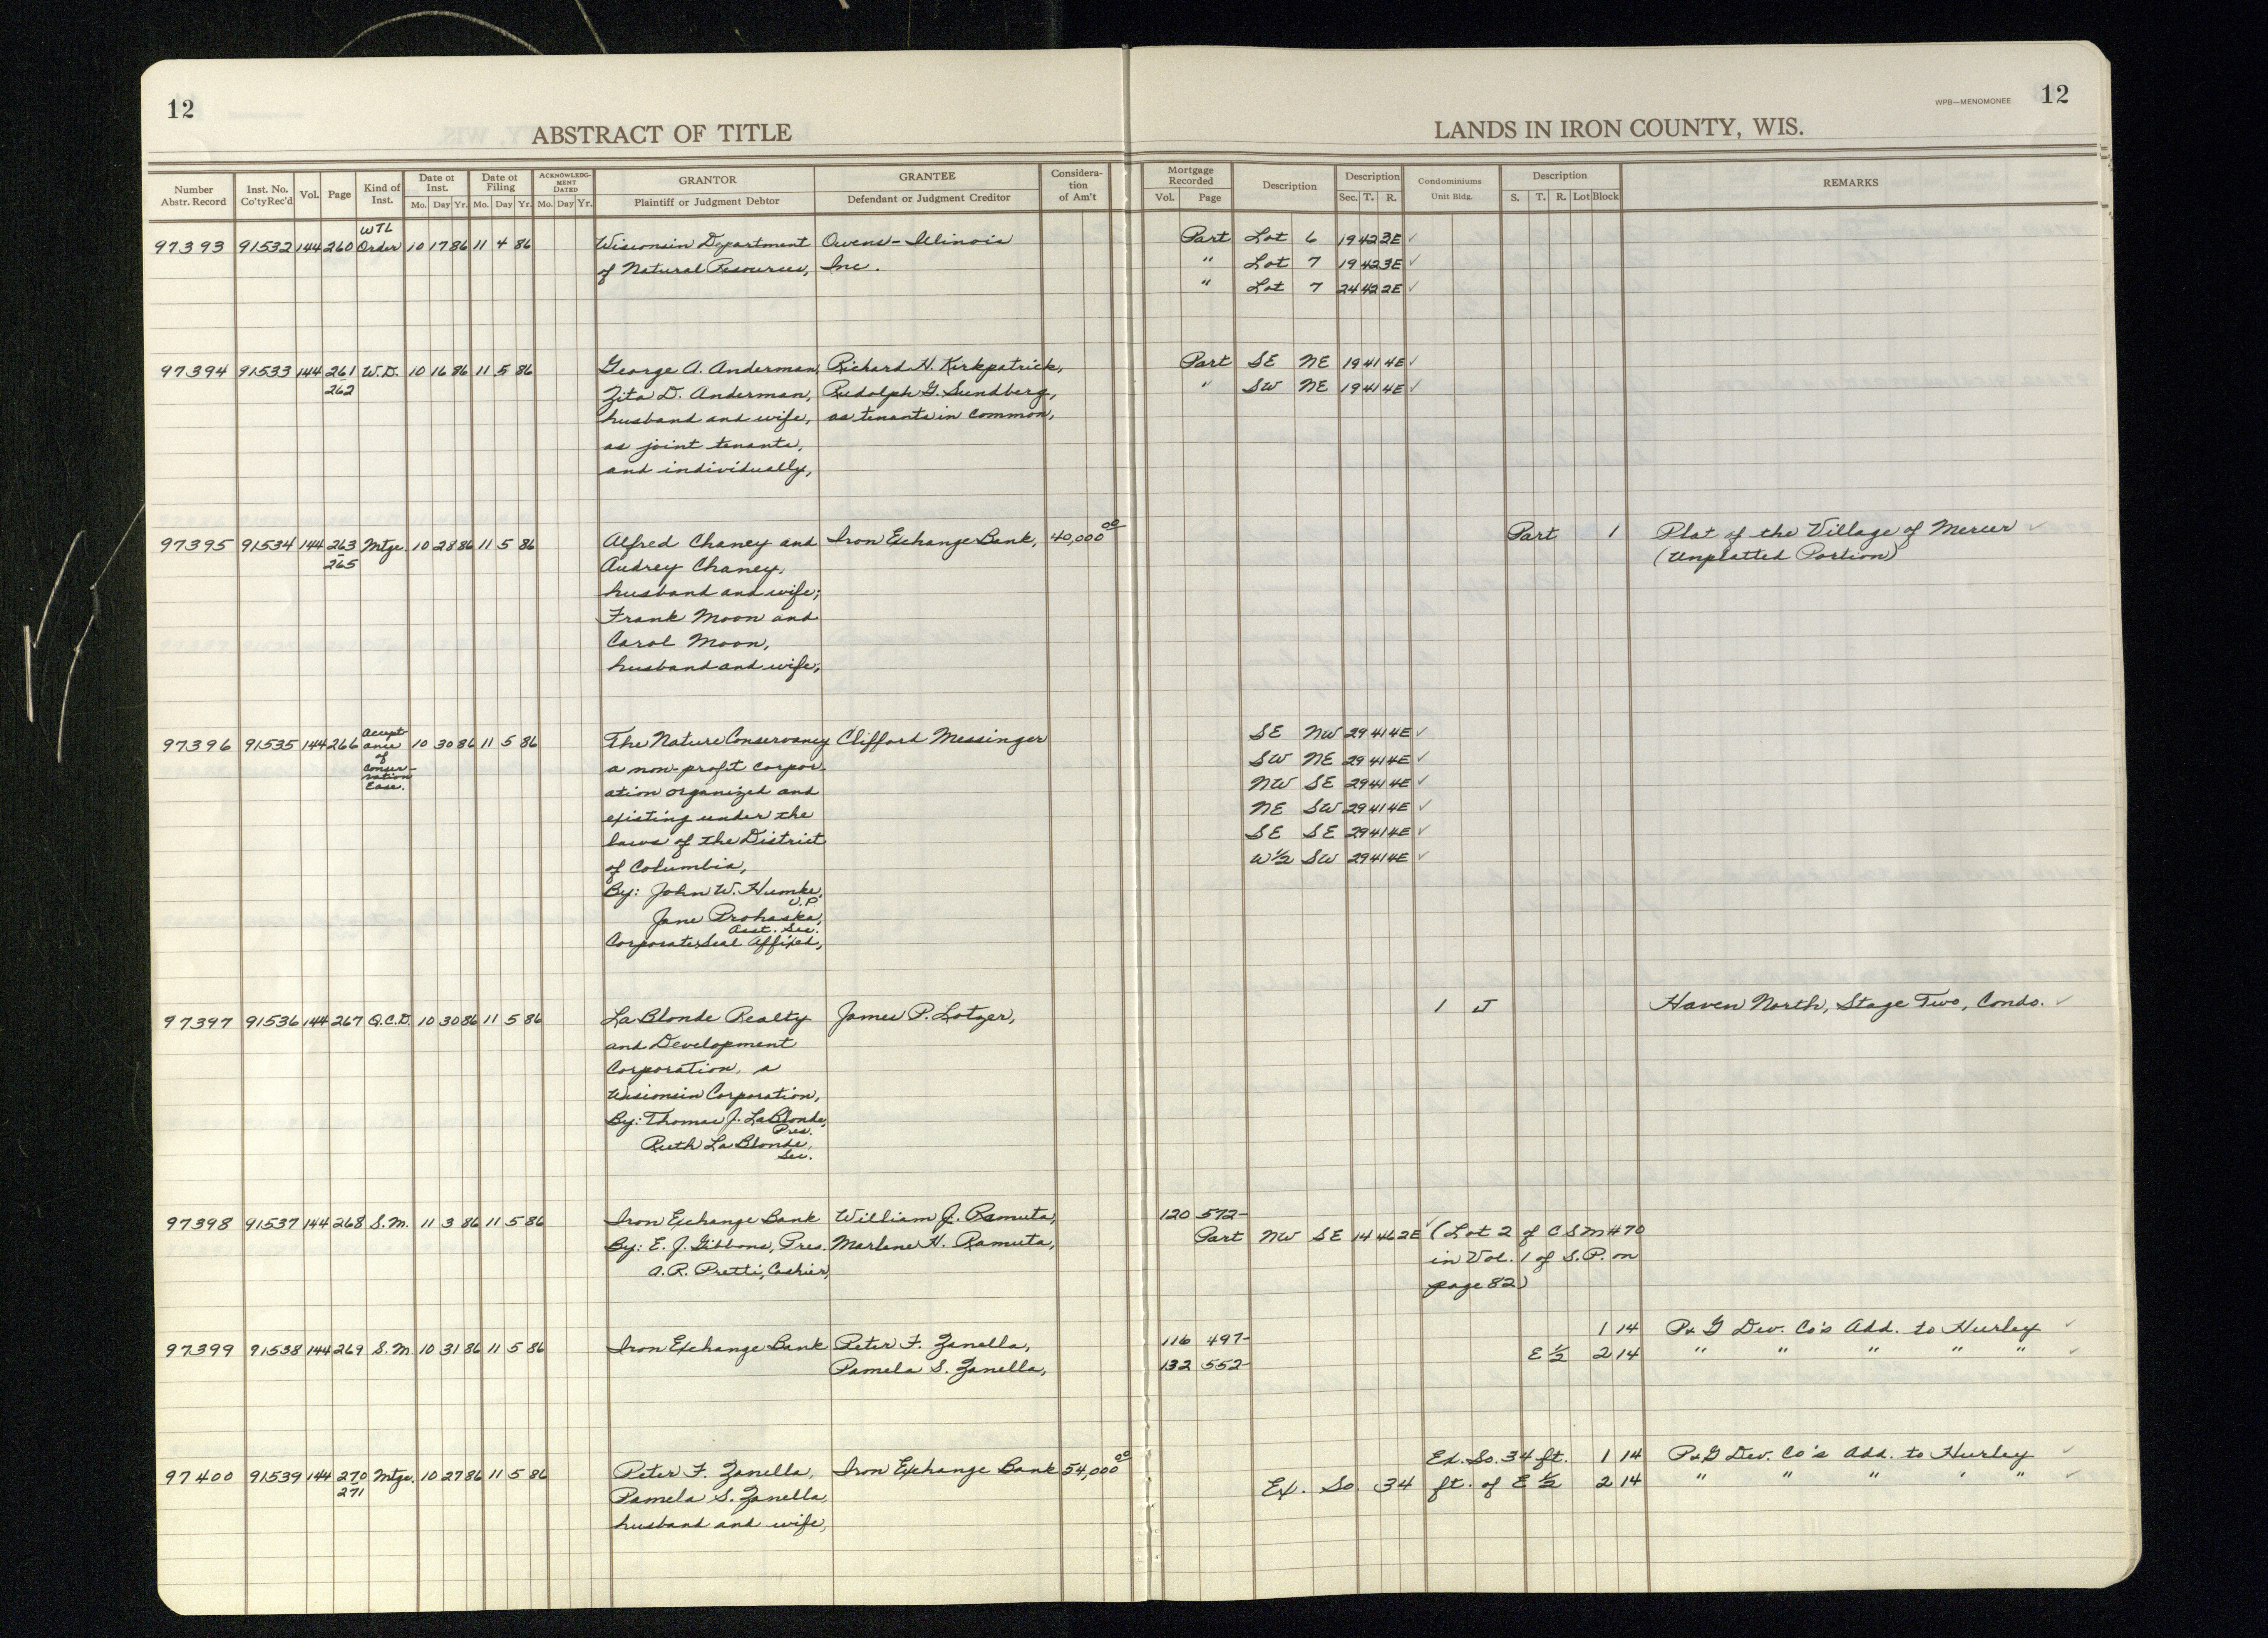 12
ABSTRACT OF TITLE
LANDS IN IRON COUNTY, WIS.
WPB—MENOMONEE 12
Number Abstr. Record Inst. No. Co'tyRec'd Vol. Page Kind of Inst. Date of Inst. Mo. Day Yr. Date of Filing Mo. Day Yr. ACKNOWLEDGMENT DATED Mo. Day Yr. GRANTOR Plaintiff or Judgment Debtor GRANTEE Defendant or Judgment Creditor Consideration of Am't Mortgage Recorded Vol. Page Description Description Sec. T. R. Condominiums Unit Bldg. Description S. T. R. Lot Block REMARKS
WTL
97393 91532 144 260 Order 10 17 86 11 4 86 Wisconsin Department Owens-Illinois Part Lot 6 19 42 3E ✓
of Natural Resources, Inc. " Lot 7 19 42 3E ✓
" Lot 7 24 42 2E ✓
97394 91533 144 261 W.D. 10 16 86 11 5 86 George A. Anderman, Richard H. Kirkpatrick, Part SE NE 19 41 4E ✓
262 Zita D. Anderman, Rudolph G. Sundberg, " SW NE 19 41 4E ✓
husband and wife, as tenants in common,
as joint tenants,
and individually,
97395 91534 144 263 Mtge. 10 28 86 11 5 86 Alfred Chaney and Iron Exchange Bank, 40,000 00 Part 1 Plat of the Village of Mercer ✓
265 Audrey Chaney, (Unplatted Portion)
husband and wife;
Frank Moon and
Carol Moon,
husband and wife;
97396 91535 144 266 Acceptance 10 30 86 11 5 86 The Nature Conservancy Clifford Messinger SE NW 29 41 4E ✓
of a non-profit corpor- SW NE 29 41 4E ✓
Conser- ation organized and NW SE 29 41 4E ✓
vation existing under the NE SW 29 41 4E ✓
Ease. laws of the District SE SE 29 41 4E ✓
of Columbia, W½ SW 29 41 4E ✓
By: John W. Humke, V.P.
Jane Prohaska, Asst. Sec.
Corporate Seal Affixed,
97397 91536 144 267 Q.C.D. 10 30 86 11 5 86 La Blonde Realty James P. Lotzer, 1 J Haven North, Stage Two, Condo. ✓
and Development
Corporation, a
Wisconsin Corporation,
By: Thomas J. LaBlonde, Pres.
Ruth La Blonde, Sec.
97398 91537 144 268 S.M. 11 3 86 11 5 86 Iron Exchange Bank William J. Ramuta, 120 572-
By: E. J. Gibbons, Pres. Marlene H. Ramuta, Part NW SE 14 46 2E ✓ (Lot 2 of CSM #70
A.R. Pretti, Cashier, in Vol. 1 of S.P. on
page 82)
97399 91538 144 269 S.M. 10 31 86 11 5 86 Iron Exchange Bank Peter F. Zanella, 116 497- 1 14 P & G Dev. Co's Add. to Hurley ✓
Pamela S. Zanella, 132 552- E ½ 2 14 " " " " " ✓
97400 91539 144 270 Mtge. 10 27 86 11 5 86 Peter F. Zanella, Iron Exchange Bank 54,000 00 Ex. So. 34 ft. 1 14 P & G Dev. Co's Add. to Hurley ✓
271 Pamela S. Zanella, Ex. So. 34 ft. of E ½ 2 14 " " " " " ✓
husband and wife,